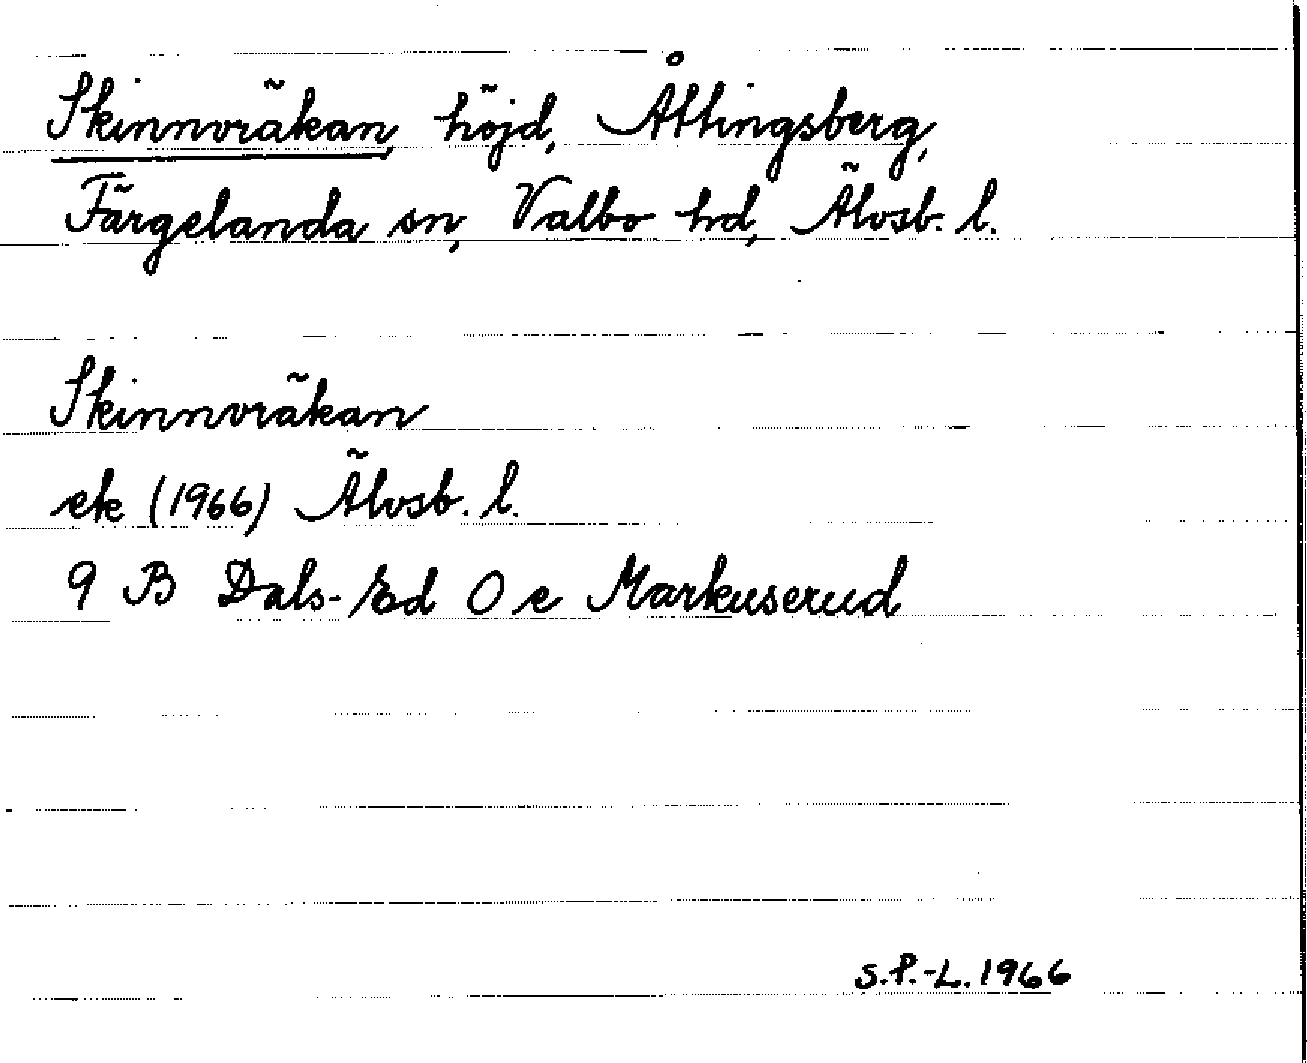 Skinnväkan, höjd, Åttingsberg,
Färgelanda sn, Valbo hd, Älvsb. l.
Skinnvräkan
ek (1966) Älvsb. l.
9 B Dals-Ed O e Markuserud
S.P.-L. 1966